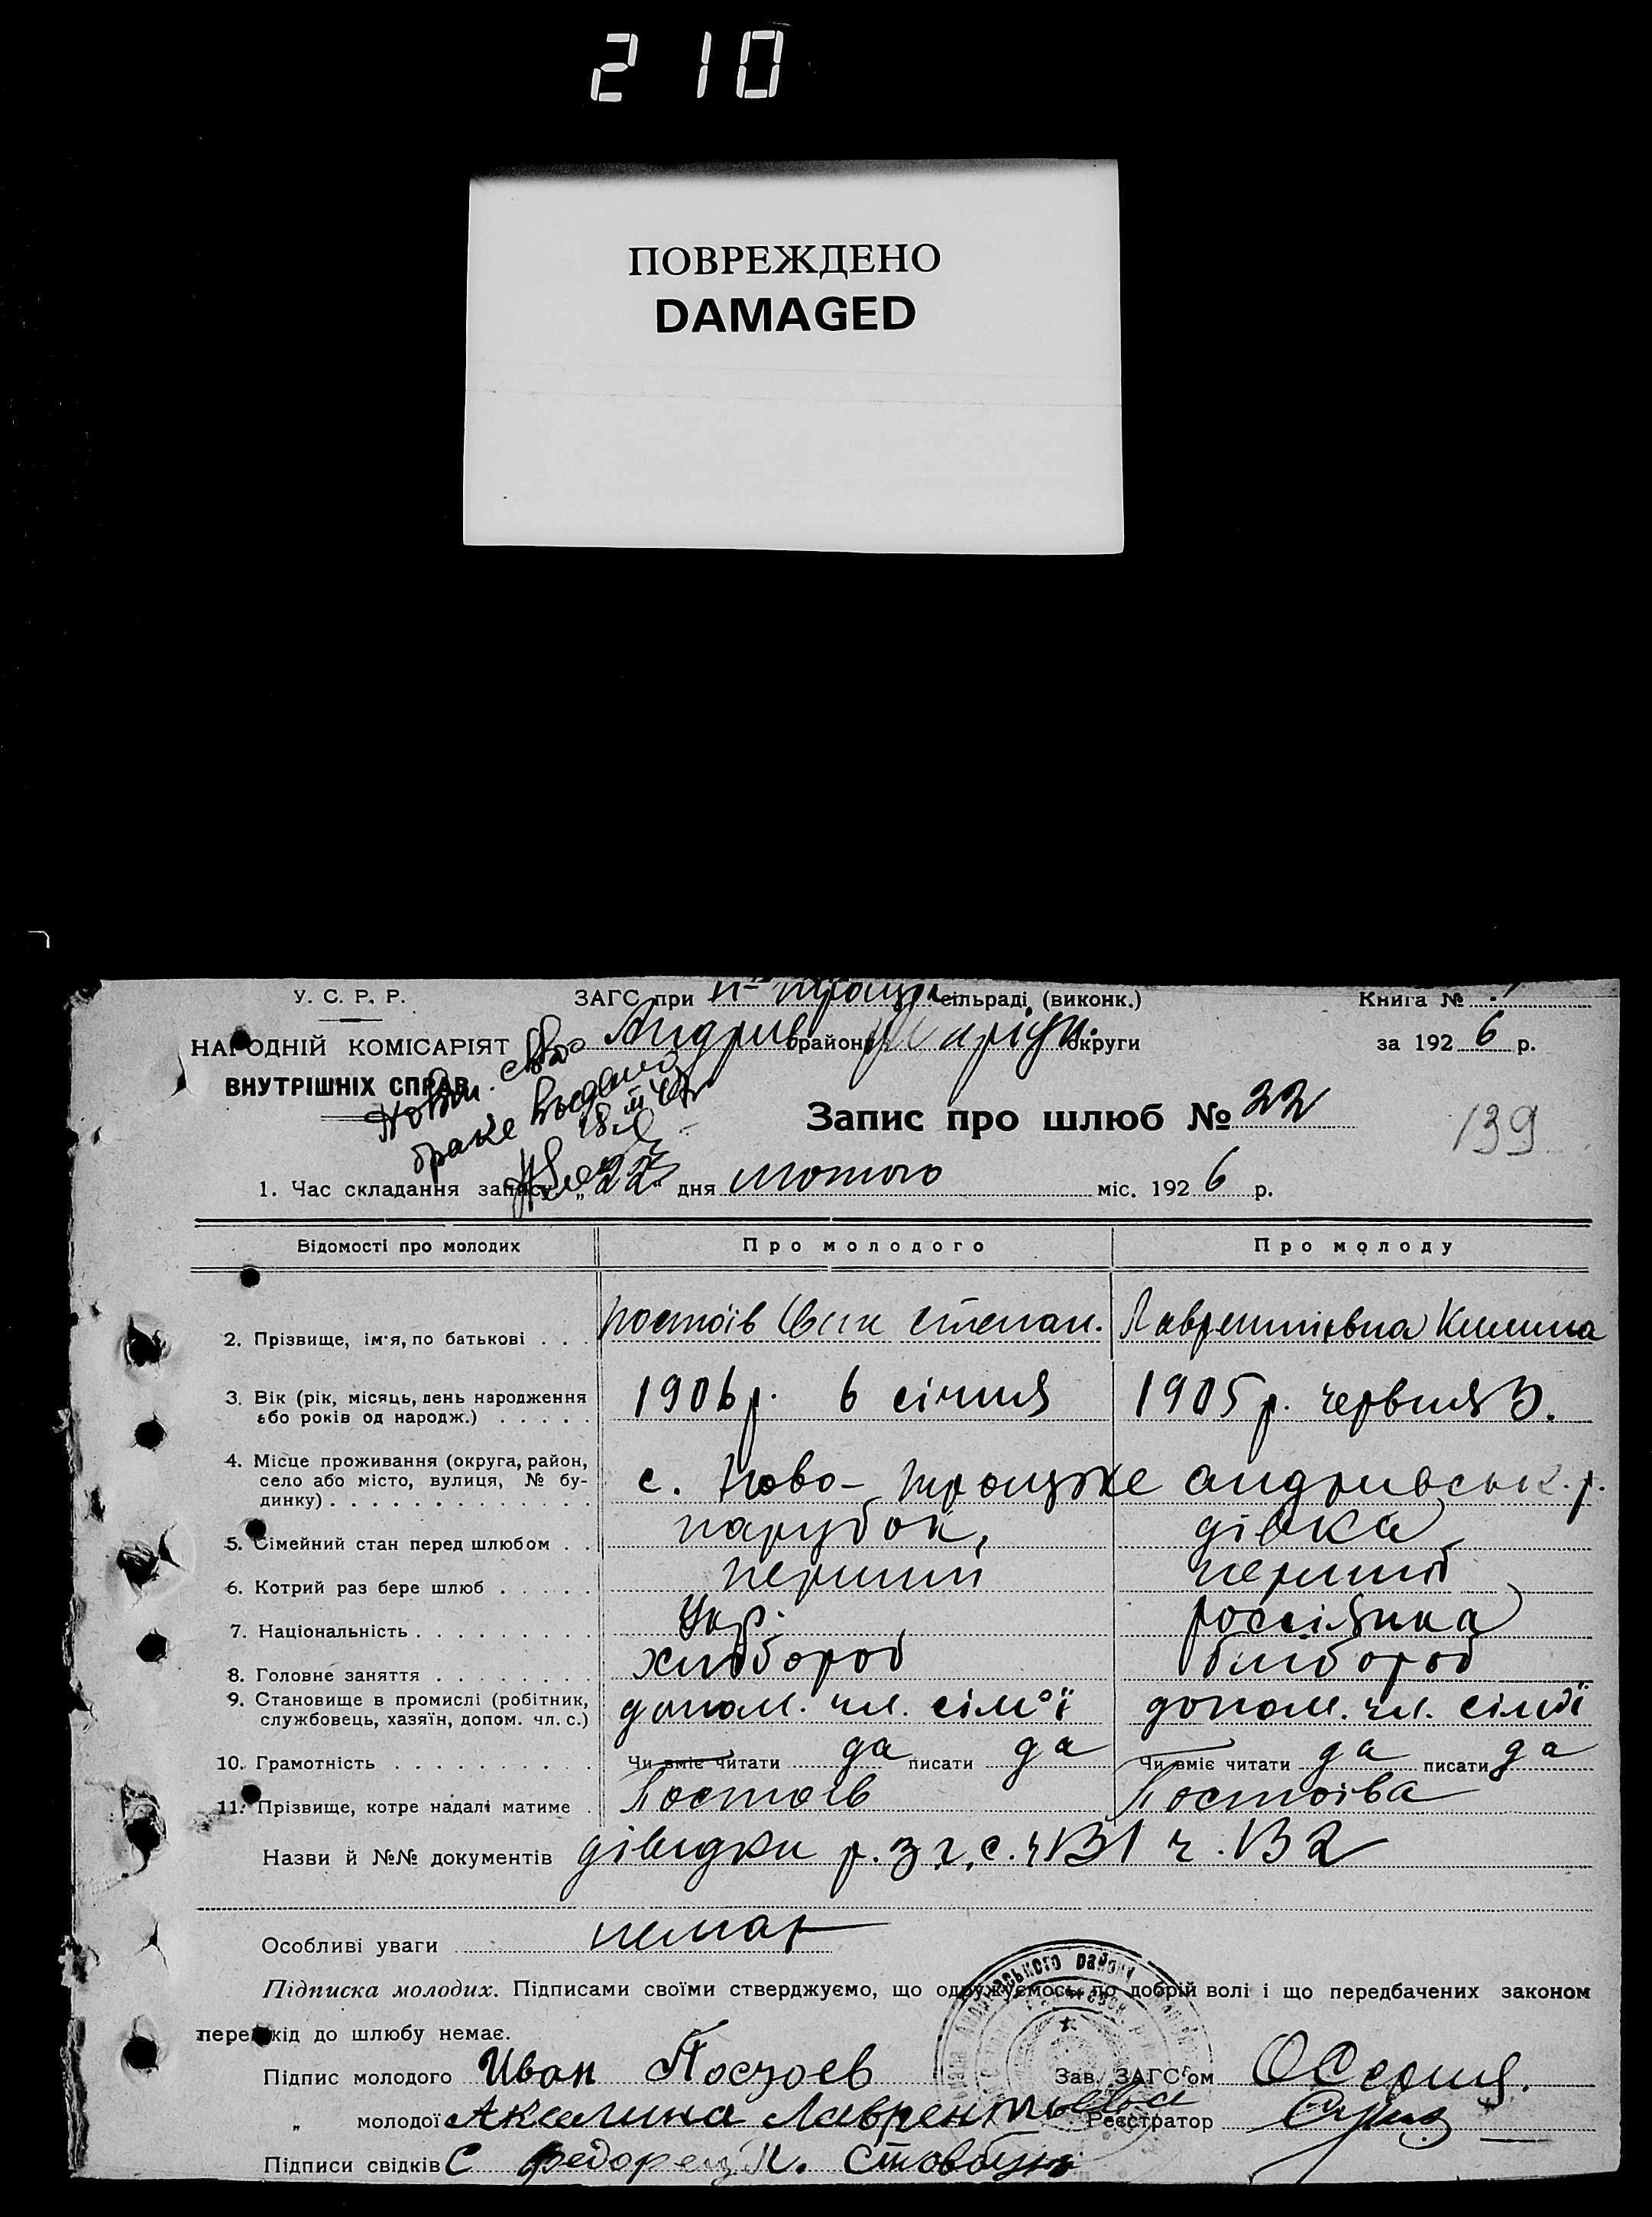 210
ПОВРЕЖДЕНО
DAMAGED
У. С. Р. Р.
ЗАГС при сільраді (виконк.)
Книга №
НАРОДНІЙ КОМІСАРІЯТ
Андрив району округи
за 1926 р.
ВНУТРІШНІХ СПРАВ
браке выдано
Запис про шлюб № 22
139
1. Час складання запису „22" дня лютого міс. 1926 р.
Відомості про молодих
Про молодого
Про молоду
2. Прізвище, ім'я, по батькові . . .
Постоїв Іван Степан.
Лаврентіевна
3. Вік (рік, місяць, день народження
або років од народж.) . . . . .
1906 р. 6 січня
1905 р. червня 3.
4. Місце проживання (округа, район,
село або місто, вулиця, № бу-
динку) . . . . . . . . . . . . .
с. Ново-троицьке андривськ. р.
5. Сімейний стан перед шлюбом . .
парубок,
дівка
6. Котрий раз бере шлюб . . . . .
перший
перший
7. Національність . . . . . . . .
Укр.
россіянка
8. Головне заняття . . . . . . . .
хлібороб
хлібороб
9. Становище в промислі (робітник,
службовець, хазяїн, допом. чл. с.)
допом. чл. сім'ї
допом. чл. сім'ї
10. Грамотність . . . . . . . . . .
Чи вміє читати да писати да
Чи вміє читати да писати да
11. Прізвище, котре надалі матиме .
Постоєв
Постоіва
Назви й №№ документів
р. з. г. с. ч 131 ч. 132
Особливі уваги немає
Підписка молодих. Підписами своїми стверджуємо, що одружуємось по добрій волі і що передбачених законом
перешкід до шлюбу немає.
Підпис молодого Иван Постоев
Зав. ЗАГС'ом
„ молодої Акилина Лаврентьева
Реєстратор
Підписи свідків С Федорец